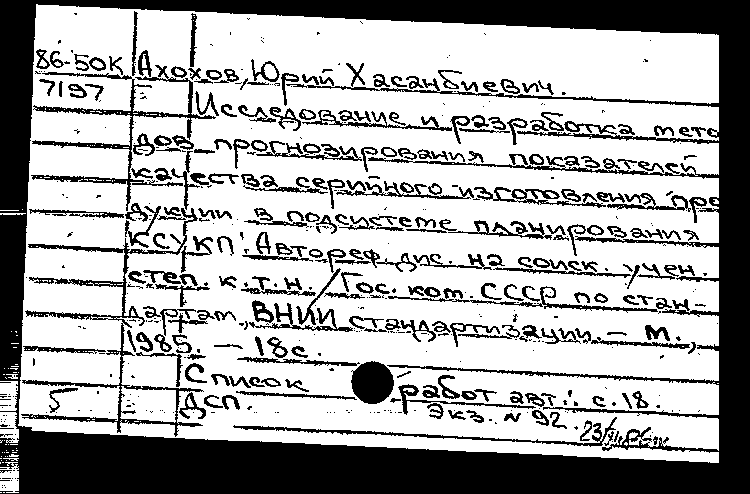 86-50К Ахохов, Юрий Хасанбиевич.
7197 Исследование и разработка мето
дов прогнозирования показателей
качества серийного изготовления про
дукции в подсистеме планирования
КСУКП: Автореф. дис. на соиск. учен.
степ. к.т.н. / Гос. ком. СССР по стан-
дартам, ВНИИ стандартизации. – М.,
1985. – 18с.
Список работ авт.: с. 18.
5 ДСП. Экз. № 92.